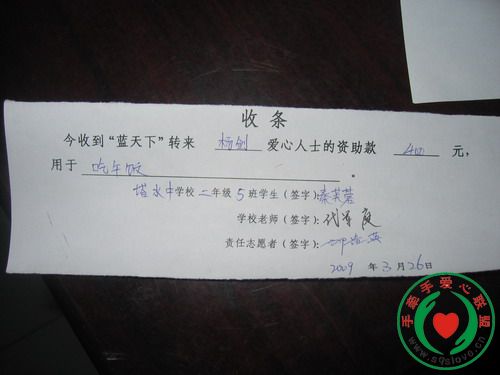 收条
今收到“蓝天下”转来 杨剑 爱心人士的资助款 400 元,
用于 吃午饭 。
塔水中学校 二 年级 5 班学生(签字):秦芙蓉
学校老师(签字):
责任志愿者(签字):
2009 年 3 月 26 日
手牵手爱心联盟
www.sqslove.cn